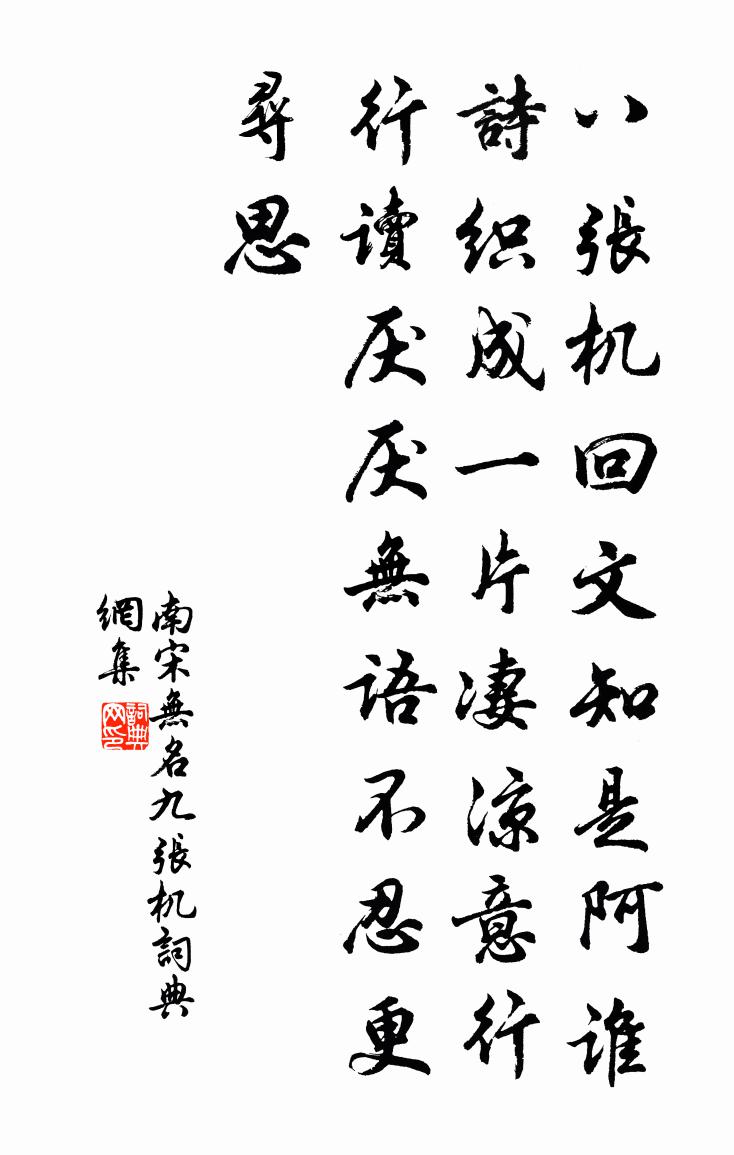 八張机回文知是阿谁
詩织成一片凄凉意行
行讀厌厌無語不忍更
尋思
南宋無名九張机詞典
網集
詞典网印